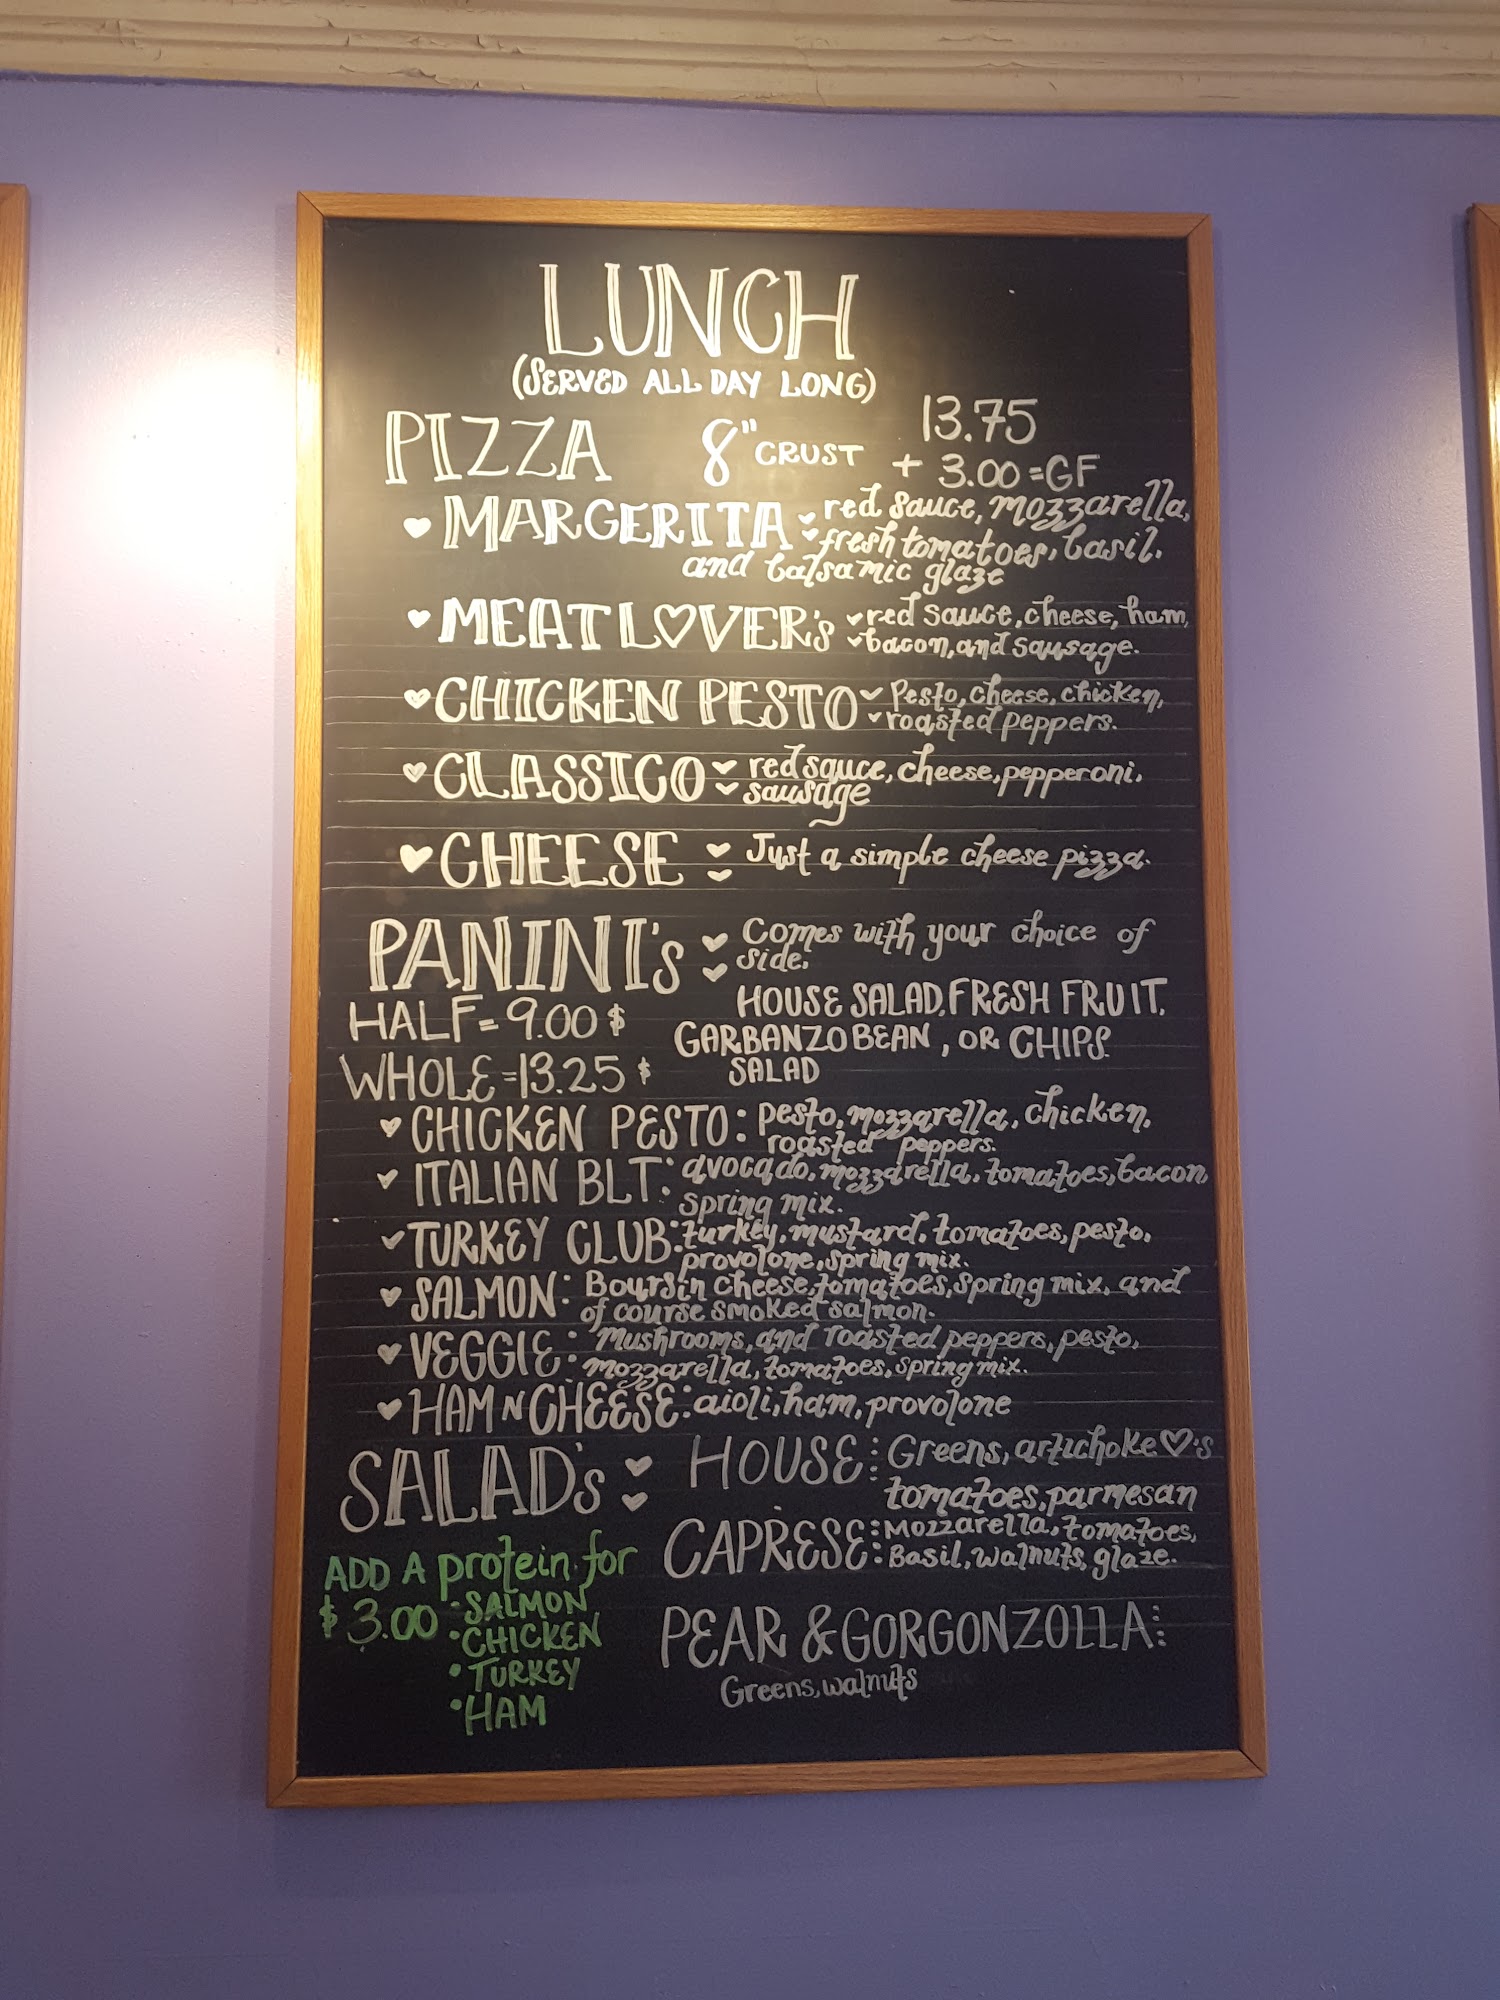 LUNCH
(SERVED ALL DAY LONG)
PIZZA 8" CRUST 13.75
+ 3.00 = GF
MARGERITA red sauce, mozzarella,
fresh tomatoes, basil,
and balsamic glaze
MEAT LOVER's red sauce, cheese, ham,
bacon, and sausage.
CHICKEN PESTO Pesto, cheese, chicken,
roasted peppers.
CLASSICO red sauce, cheese, pepperoni,
sausage
CHEESE Just a simple cheese pizza.
PANINI's Comes with your choice of
side.
HOUSE SALAD, FRESH FRUIT,
HALF = 9.00 $ GARBANZO BEAN, OR CHIPS.
SALAD
WHOLE = 13.25 $
CHICKEN PESTO: pesto, mozzarella, chicken,
roasted peppers.
ITALIAN BLT: avocado, mozzarella, tomatoes, bacon,
spring mix.
TURKEY CLUB: turkey, mustard, tomatoes, pesto,
provolone, spring mix.
SALMON: Boursin cheese, tomatoes, spring mix, and
of course smoked salmon.
VEGGIE: Mushrooms, and roasted peppers, pesto,
mozzarella, tomatoes, spring mix.
HAM N CHEESE: aioli, ham, provolone
SALAD's HOUSE: Greens, artichoke ♡'s
tomatoes, parmesan
CAPRESE: Mozzarella, tomatoes,
Basil, walnuts, glaze.
PEAR & GORGONZOLLA:
Greens, walnuts
ADD A protein for
$3.00 • SALMON
• CHICKEN
• TURKEY
• HAM